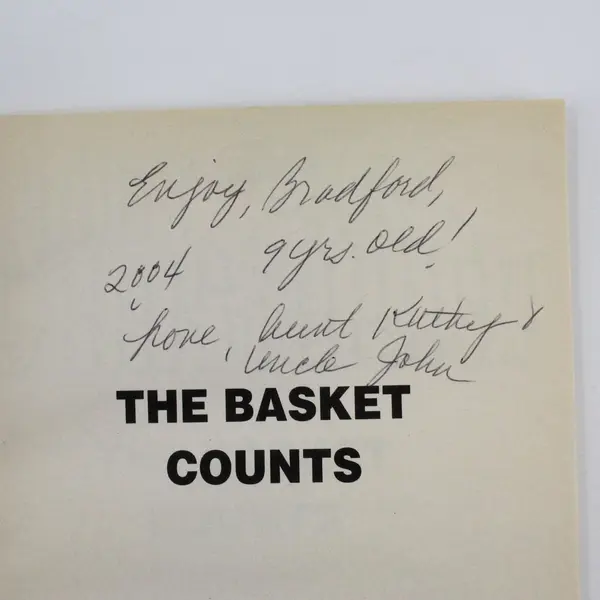 Enjoy, Bradford,
2004 9 yrs. old!
Love, Aunt Kathy &
Uncle John
THE BASKET
COUNTS